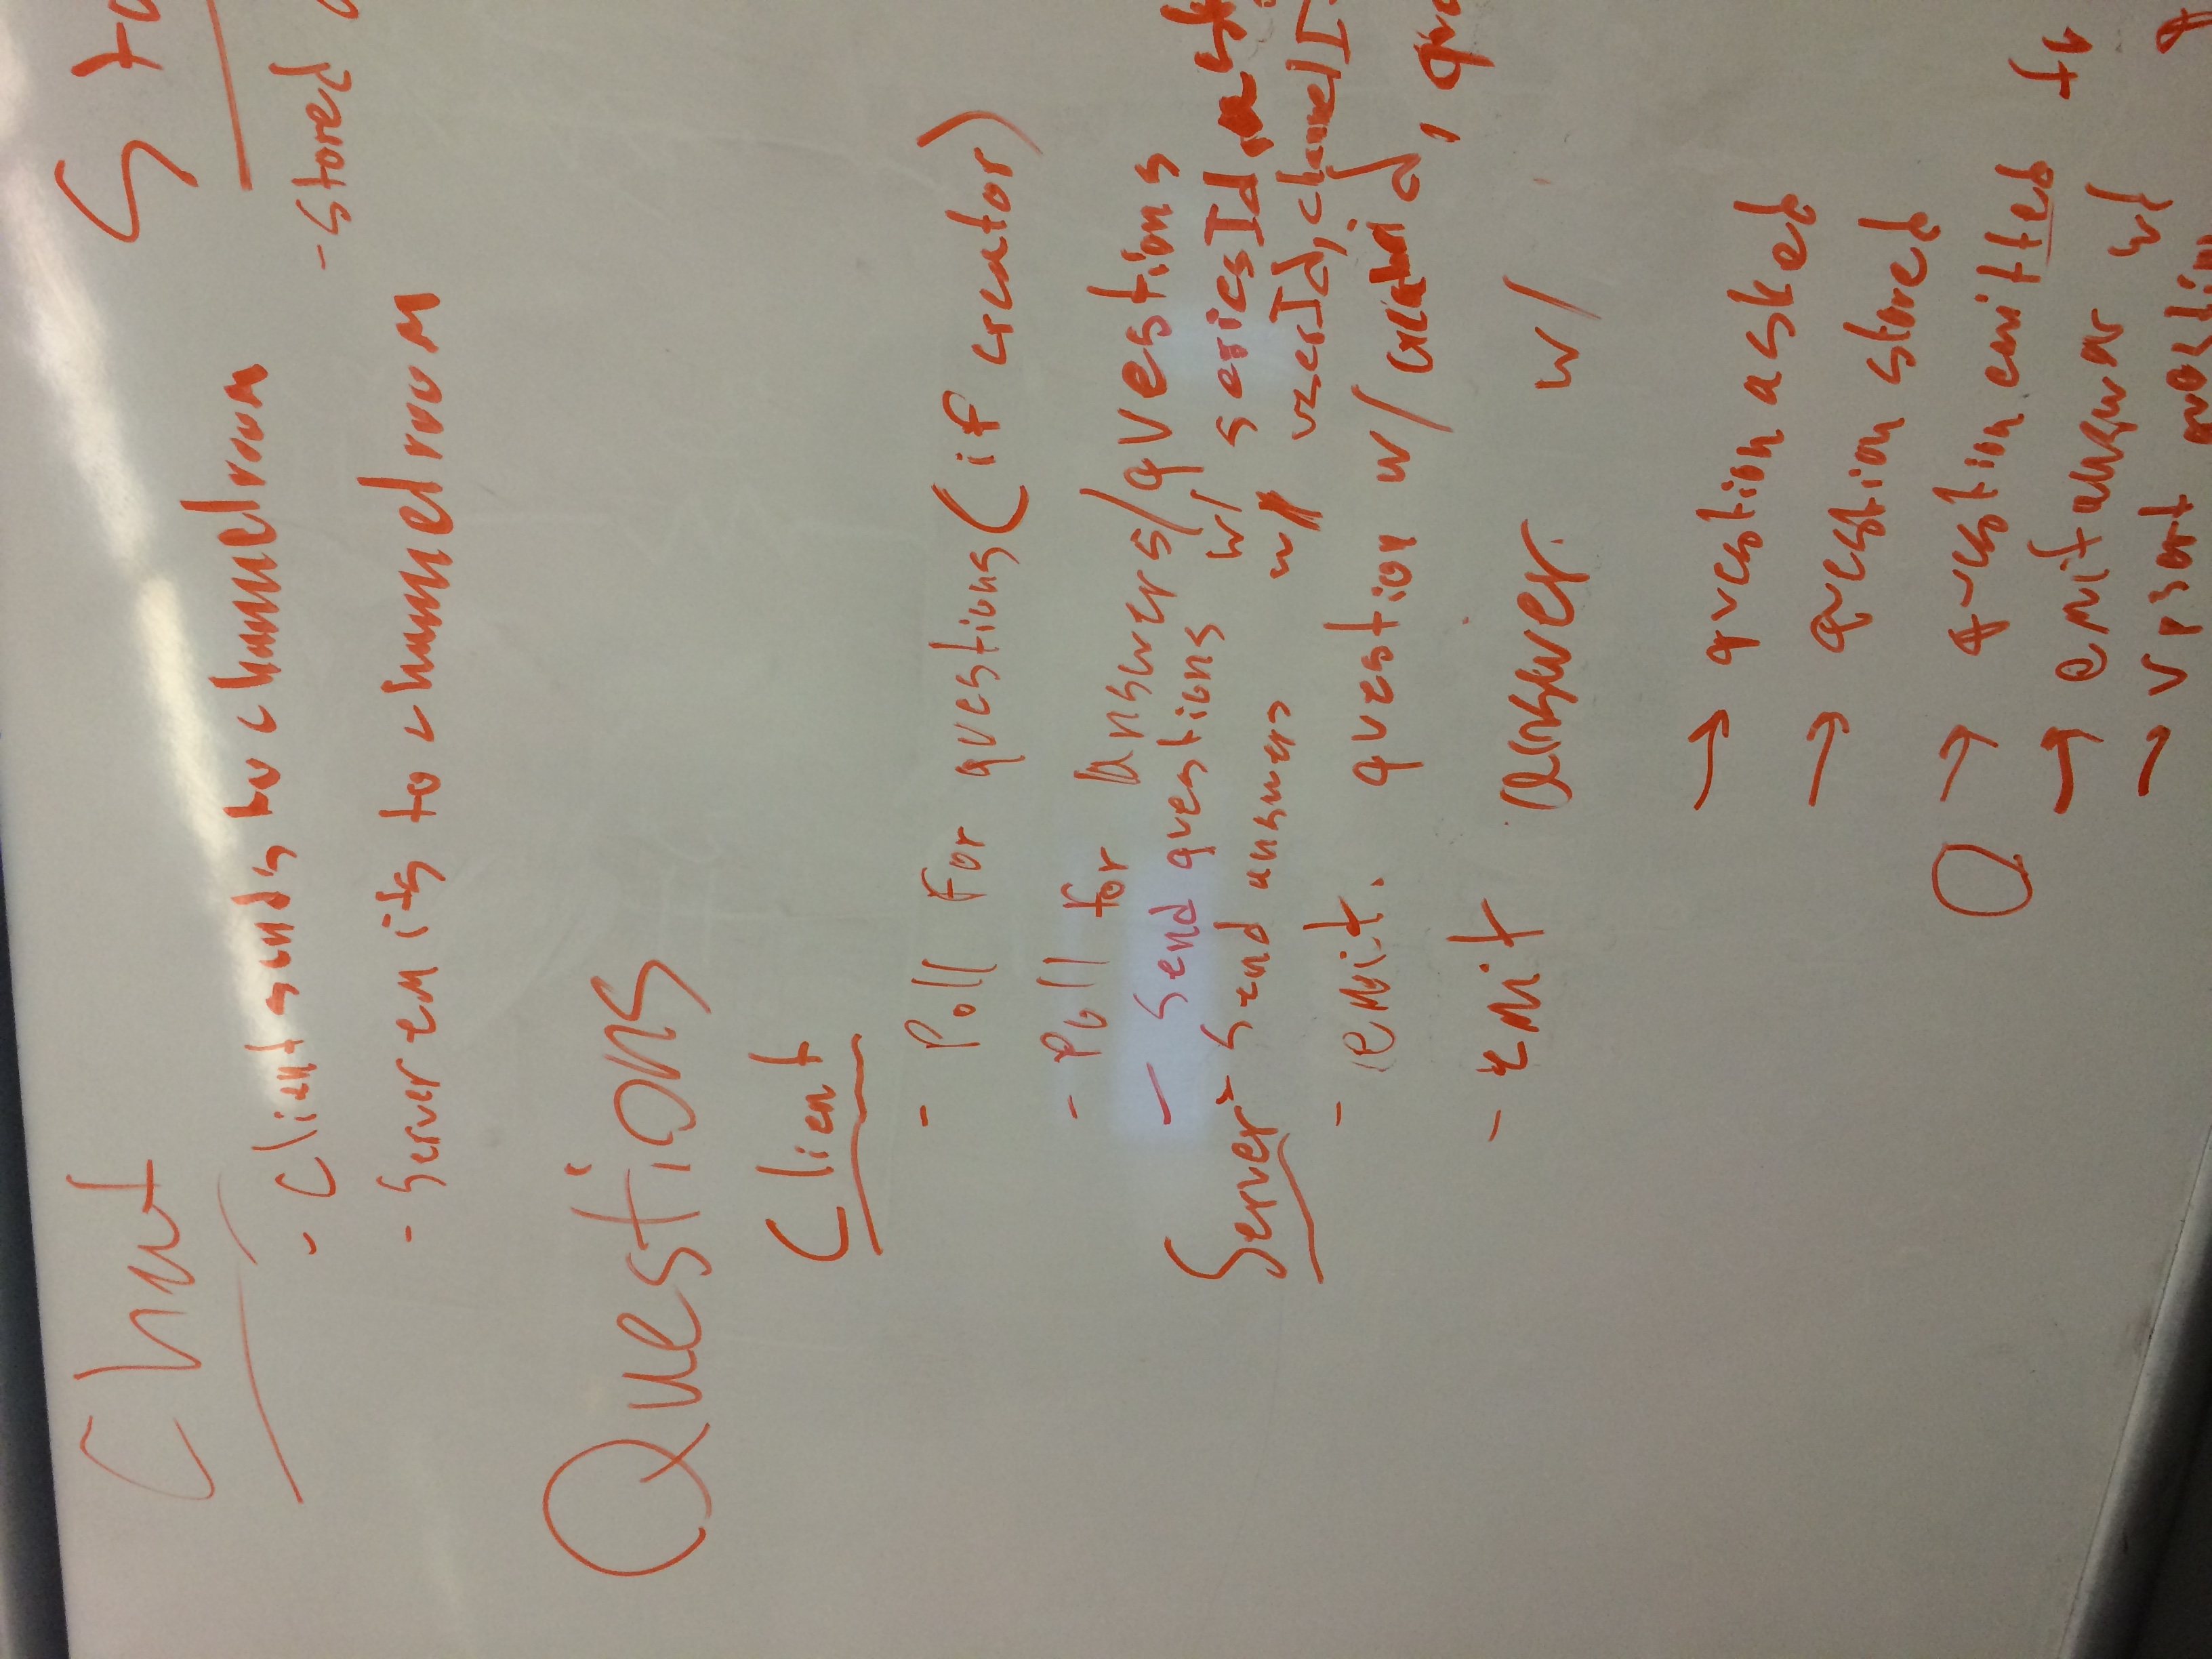 Chat
- Client sends to channel room
- Server emits to channel room
Sto
- Stored
Questions
Client
- Poll for questions (if creator)
- Poll for answers/questions
- Send questions w/ seriesId, ask
- Send answers w/ userId, channelI
Server
- emit question w/ creatorid, que
- emit answer w/
→ question asked
→ question stored
→ question emitted to
→ emit answer w/
→ upsert question